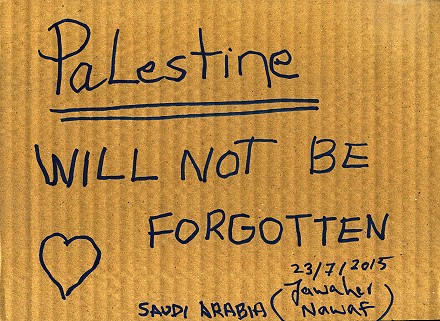 PaLestine
WILL NOT BE
FORGOTTEN
23/7/2015
SAUDI ARABIA (Jawaher
Nawaf)